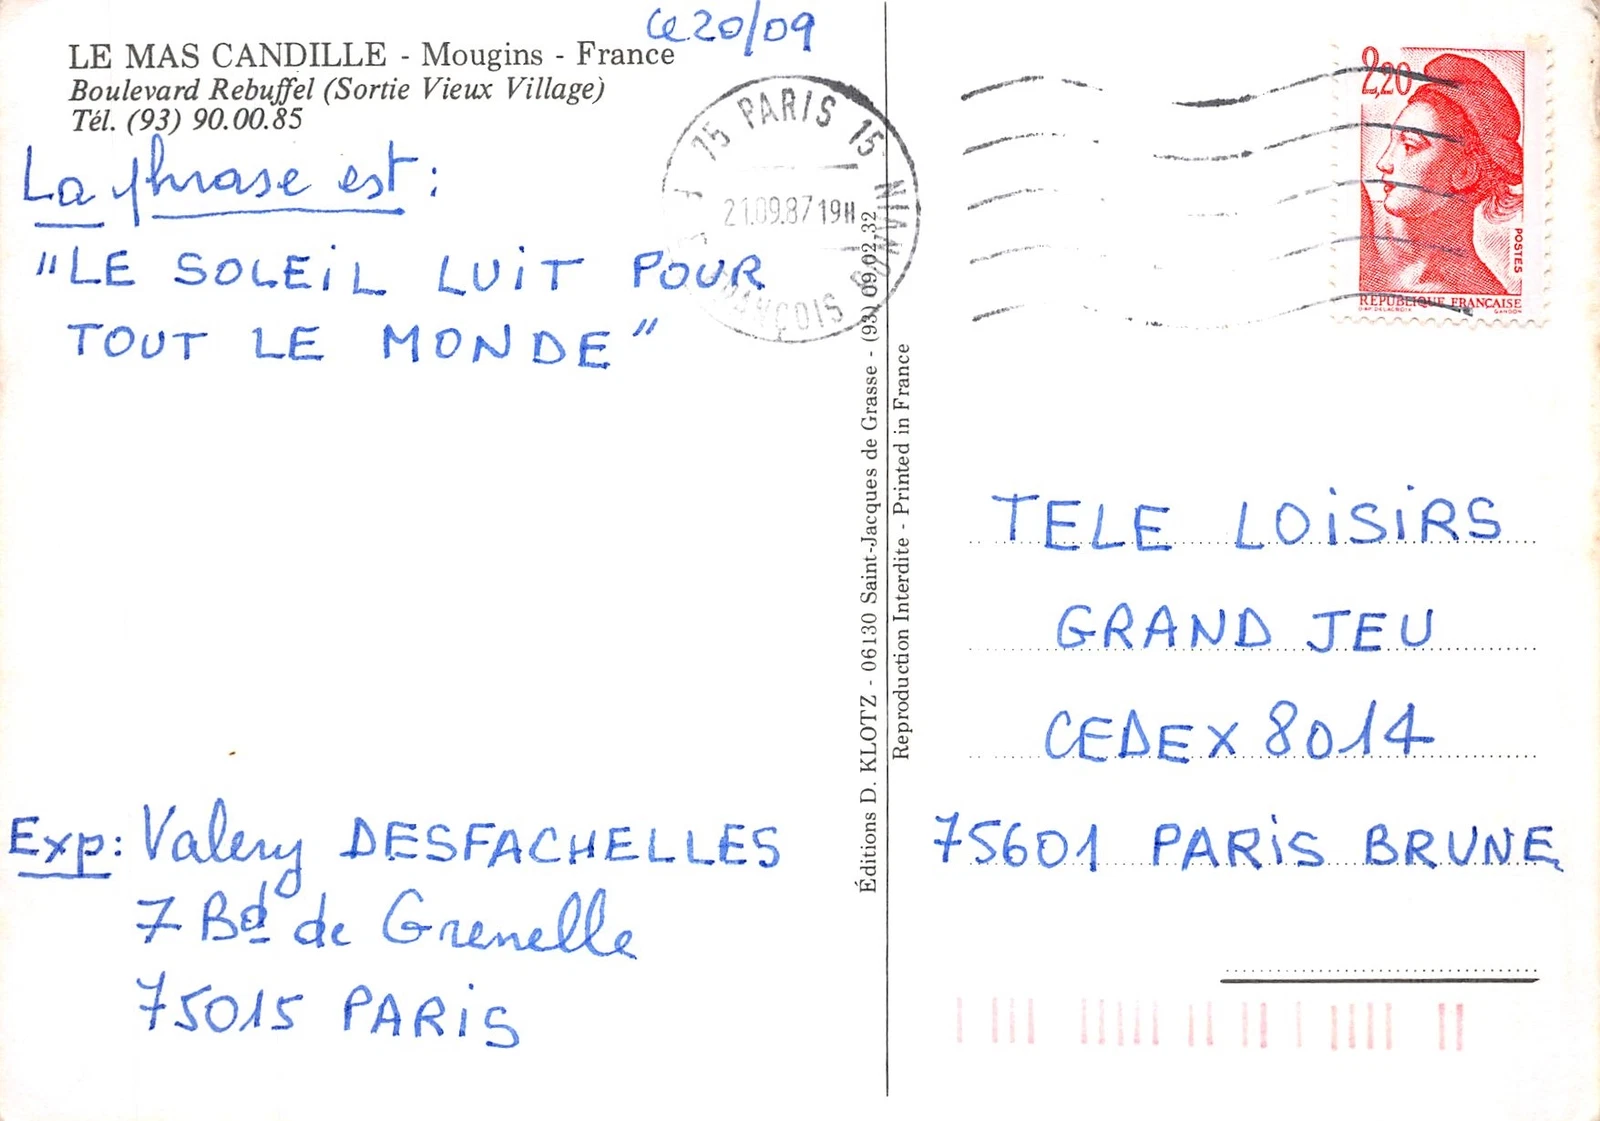 Le 20/09
LE MAS CANDILLE - Mougins - France
Boulevard Rebuffel (Sortie Vieux Village)
Tél. (93) 90.00.85
La phrase est :
"LE SOLEIL LUIT POUR
TOUT LE MONDE"
Exp: Valery DESFACHELLES
7 Bd de Grenelle
75015 PARIS
75 PARIS 15
21.09.87 19H
Éditions D. KLOTZ - 06130 Saint-Jacques de Grasse - (93) 09.02.32
Reproduction Interdite - Printed in France
2,20
POSTES
RÉPUBLIQUE FRANÇAISE
D'AP. DELACROIX GANDON
TELE LOISIRS
GRAND JEU
CEDEX 8014
75601 PARIS BRUNE